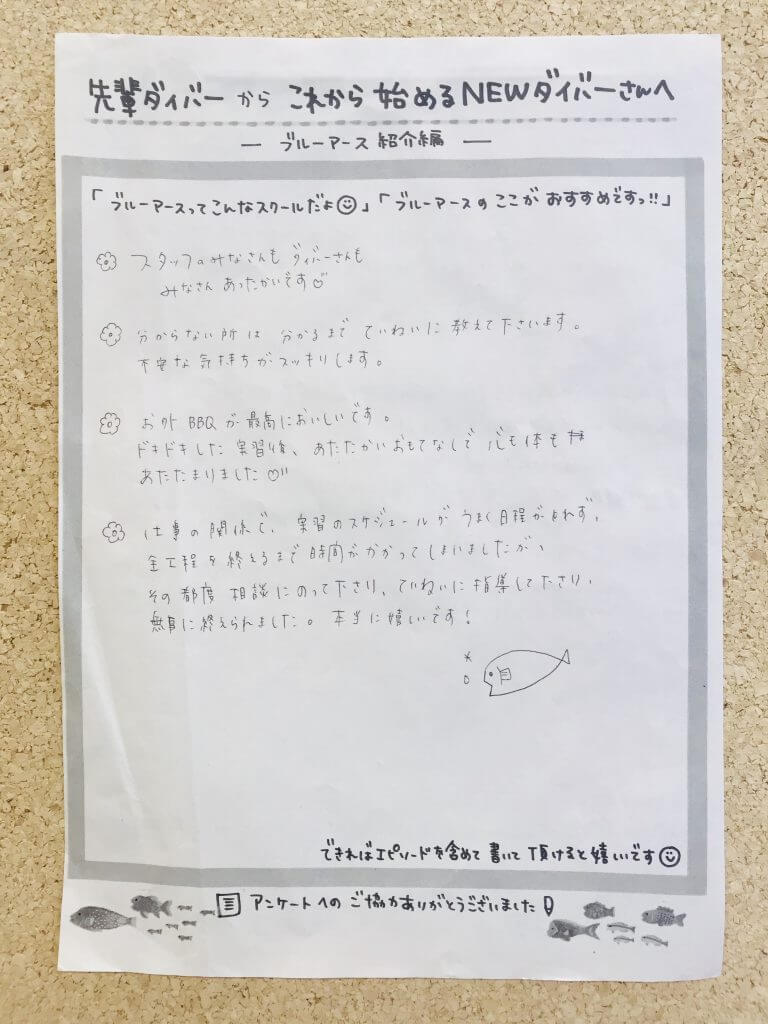 先輩ダイバーから これから 始めるNEWダイバーさんへ
― ブルーアース 紹介編 ―
「ブルーアースってこんなスクールだよ☺」「ブルーアースの ここが おすすめですっ!!」
スタッフのみなさんも ダイバーさんも
みなさん あったかいです♡
分からない所は 分かるまで ていねいに 教えて下さいます。
不安な気持ちがスッキリします。
お外BBQが最高においしいです。
ドキドキした実習後、あたたかいおもてなしで 心も体も
あたたまりました♡
仕事の関係で、実習のスケジュールが うまく日程がとれず、
全工程を終えるまで時間がかかってしまいましたが、
その都度 相談にのって下さり、ていねいに指導して下さり、
無事に終えられました。 本当に嬉しいです!
できればエピソードを含めて 書いて 頂けると嬉しいです☺
アンケートへの ご協力ありがとうございました